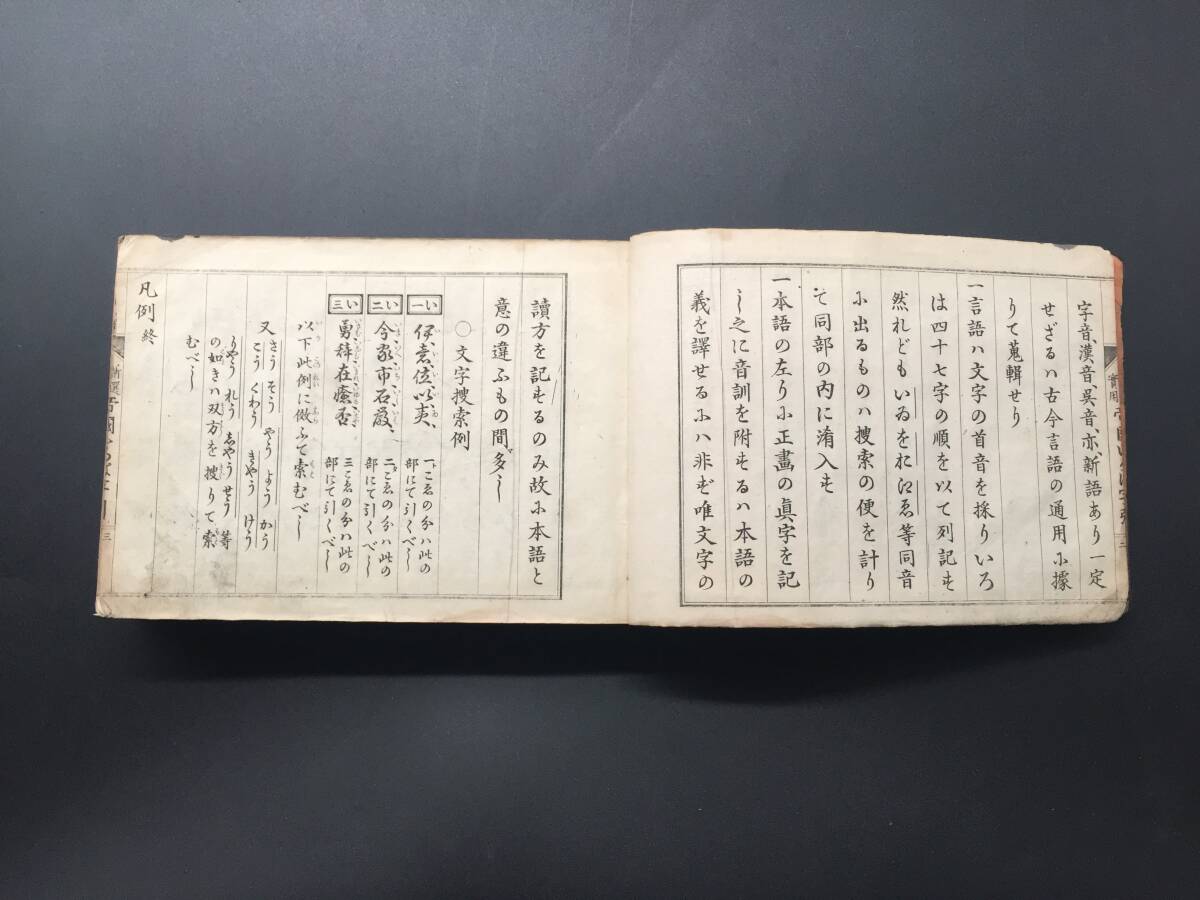 字音、漢音、呉音、亦、新語あり一定
せざるハ古今言語の通用ふ據
りて蒐輯せり
一言語ハ文字の首音を採りいろ
は四十七字の順を以て列記も
然れどもいゐをお江ゑ等同音
ふ出るものハ搜索の便を計り
て同部の内に淆入も
一本語の左りふ正畫の眞字を記
し之に音訓を附もるハ本語の
義を譯せるふハ非ず唯文字の
讀方を記もるのみ故ふ本語と
意の違ふもの間〻多し
〇文字搜索例
い一
伊、意、位、以、夷、
一こゑの分ハ此の
部にて引くべし
い二
今、家、市、石、嚴、
二こゑの分ハ此の
部にて引くべし
い三
勇、辞、在、癒、否
三こゑの分ハ此の
部にて引くべし
以下此例に倣ふて索むべし
又さう そう やう よう かう
こう くわう きやう けう
りやう れう しやう せう 等
の如きハ双方を搜りて索
むべし
凡例終